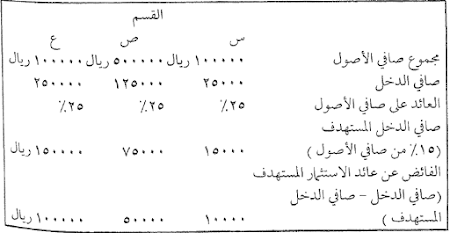 القسم
س ص ع
مجموع صافي الأصول ١٠٠٠٠٠ ريال ٥٠٠٠٠٠ ريال ١٠٠٠٠٠٠ ريال
صافي الدخل ٢٥٠٠٠ ١٢٥٠٠٠ ٢٥٠٠٠٠
العائد على صافي الأصول ٢٥٪ ٢٥٪ ٢٥٪
صافي الدخل المستهدف
(١٥٪ من صافي الأصول) ١٥٠٠٠ ٧٥٠٠٠ ١٥٠٠٠٠ ريال
الفائض عن عائد الاستثمار المستهدف
(صافي الدخل - صافي الدخل
المستهدف) ١٠٠٠٠ ٥٠٠٠٠ ١٠٠٠٠٠ ريال